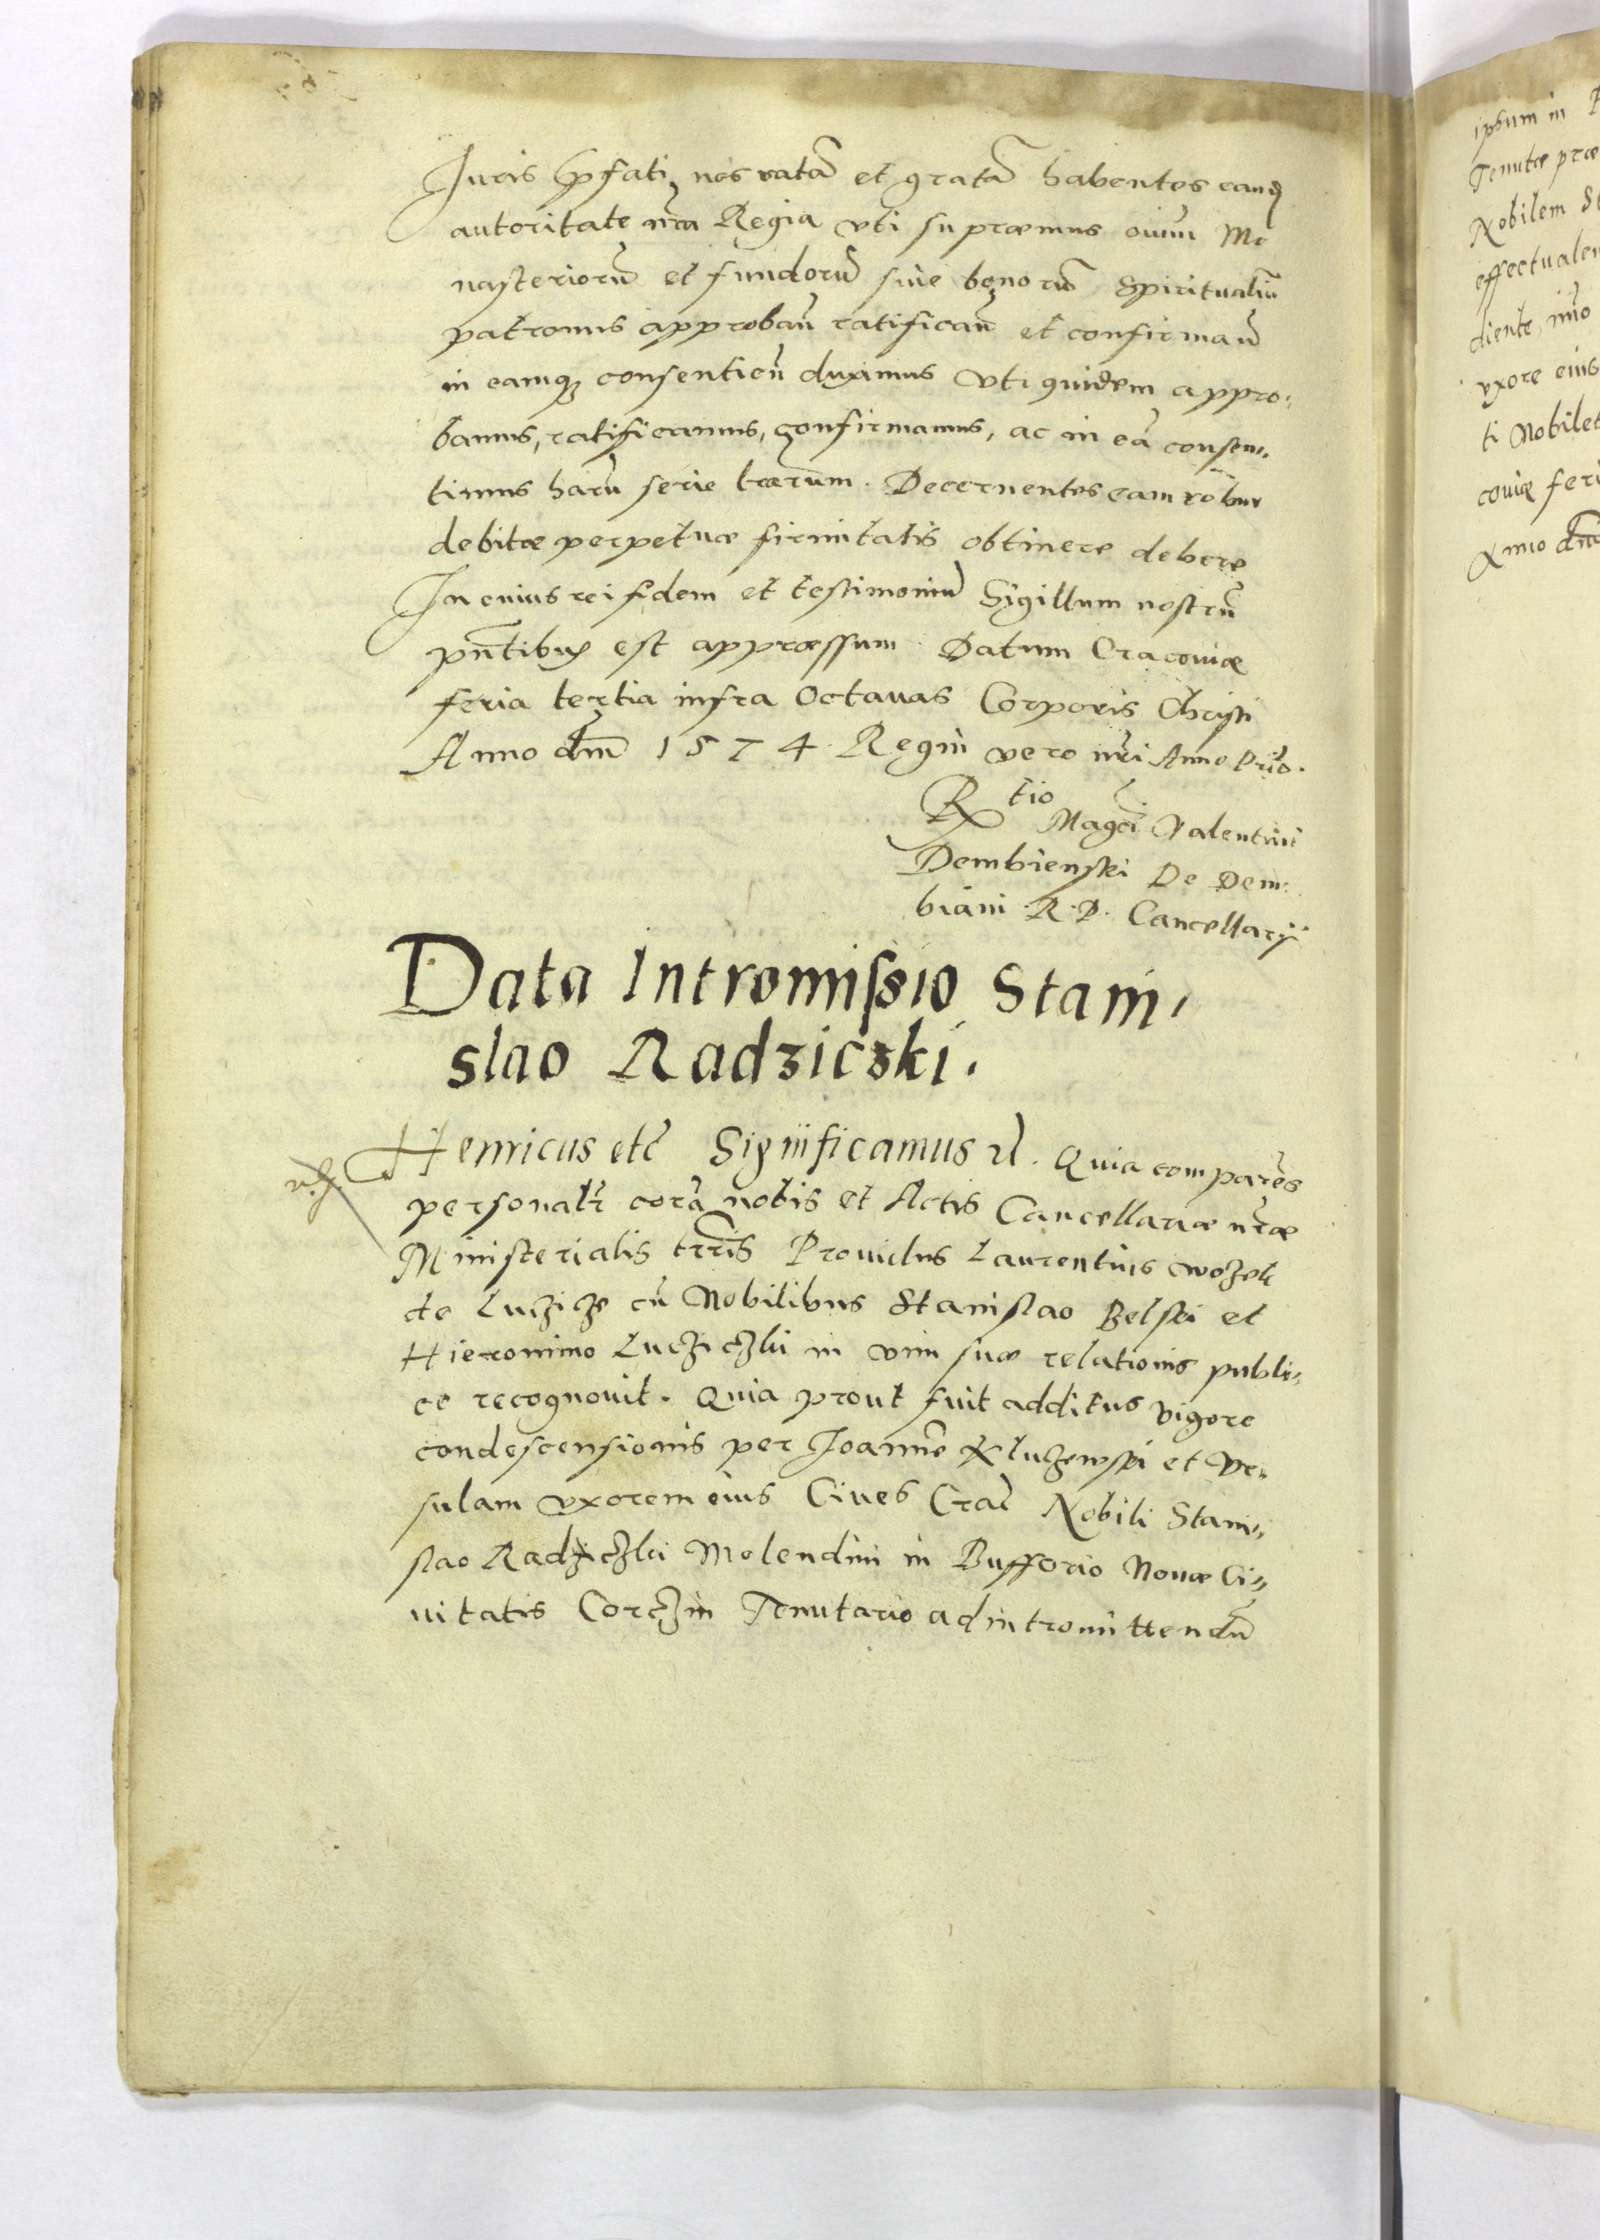 Juris pfati, nos ratã et gratã habentes eand
autoritate nrã Regia vti supraemus oium Mo
nasteriorũ et fundorũ siue bonorũ Spiritualiũ
patronus approbań ratificań et confirmań
in eamq3 consentień duximus vti quidem appro,
bamus, ratificamus, confirmamus, ac in eã consen,,
timus harũ serie lrarum. Decernentes eam robur
debitae perpetuae firmitatis obtinere debere
In cuius rei fidem et testimoniũ Sigillum nostrũ
pñtibus est appraessum Datum Cracouiae
feria tertia infra Octauas Corporis Christi
Anno dñi 1574. Regni vero nri Anno Primo.
Rtio
Magci Valentini
Dembienski De Dem
biani. R. P. Cancellarij
Data Intromissio Stani,
slao Radziczki.
Henricus etc Significamus etc. Quia comparẽs
personalr corã nobis et Actis Cancellariae nrae
Ministerialis trris Prouidus Laurentius
de Luczicze cũ Nobilibus Stanislao Belski et
Hieronimo Lucziczki in vim suae relationis publi,,
ce recognouit. Quia prout fuit additus vigore
condescensionis per Joannẽ Kluczewski et Vr,,
sulam vxorem eius Ciues Crac Nobili Stani,,
slao Radziczki Molendini in Bufforio Nouae Ci,,
uitatis Corczin Tenutario ad intromittendũ
ipsum in
Tenutae prae
Nobilem St
effectualem
diente, imo
vxore eius
ti Nobiles
couiae feri
Anno dñi